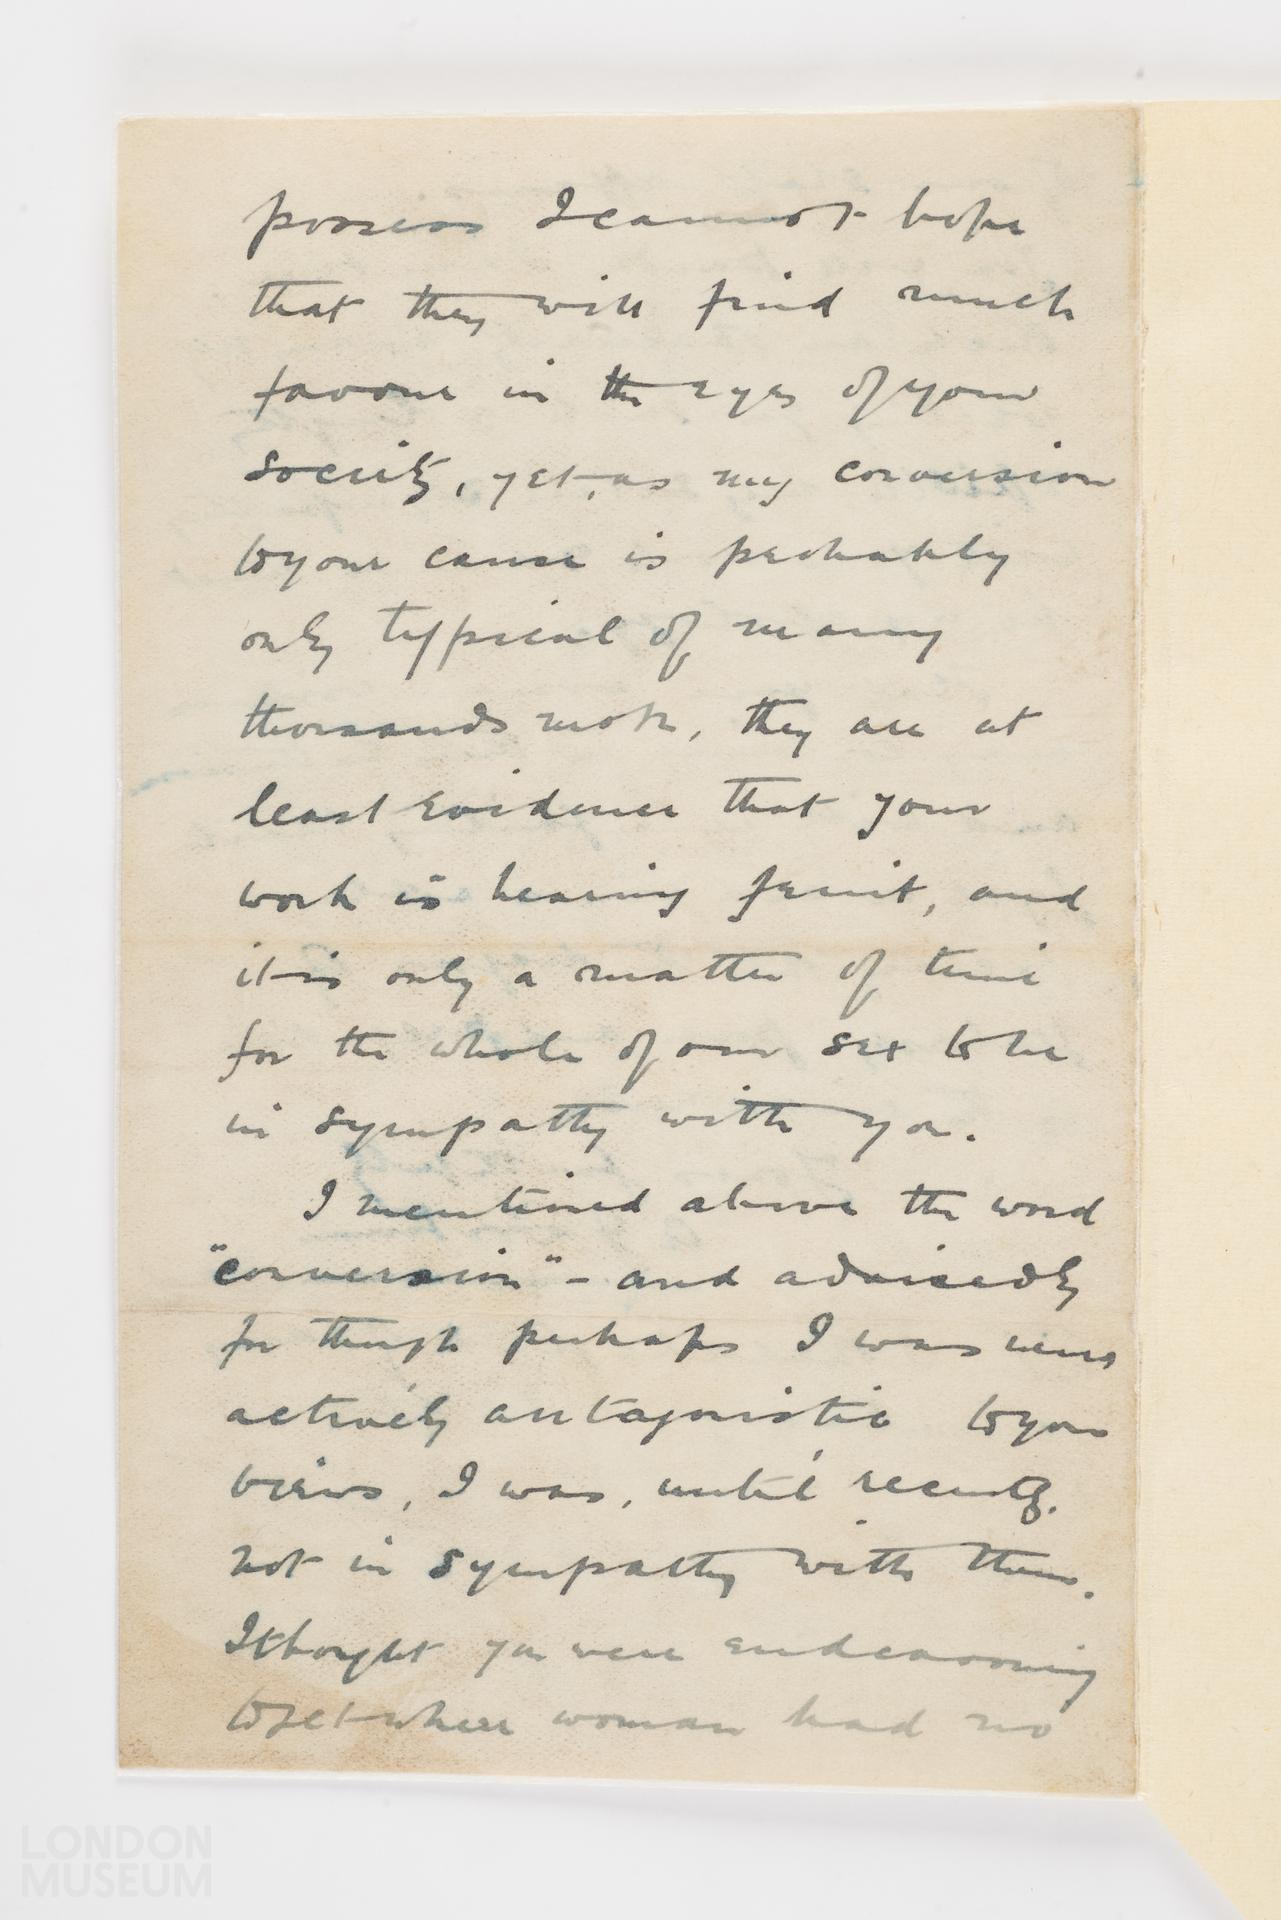 possess I cannot hope
that they will find much
favour in the eyes of your
society, yet, as my conversion
to your cause is probably
only typical of many
thousands more, they are at
least evidence that your
work is bearing fruit, and
it is only a matter of time
for the whole of our sex to be
in sympathy with you.
I mentioned above the word
"conversion" - and advisedly
for though perhaps I was never
actively antagonistic to your
views, I was, until recently,
not in sympathy with them.
I thought you were endeavouring
to get where woman had no
LONDON
MUSEUM